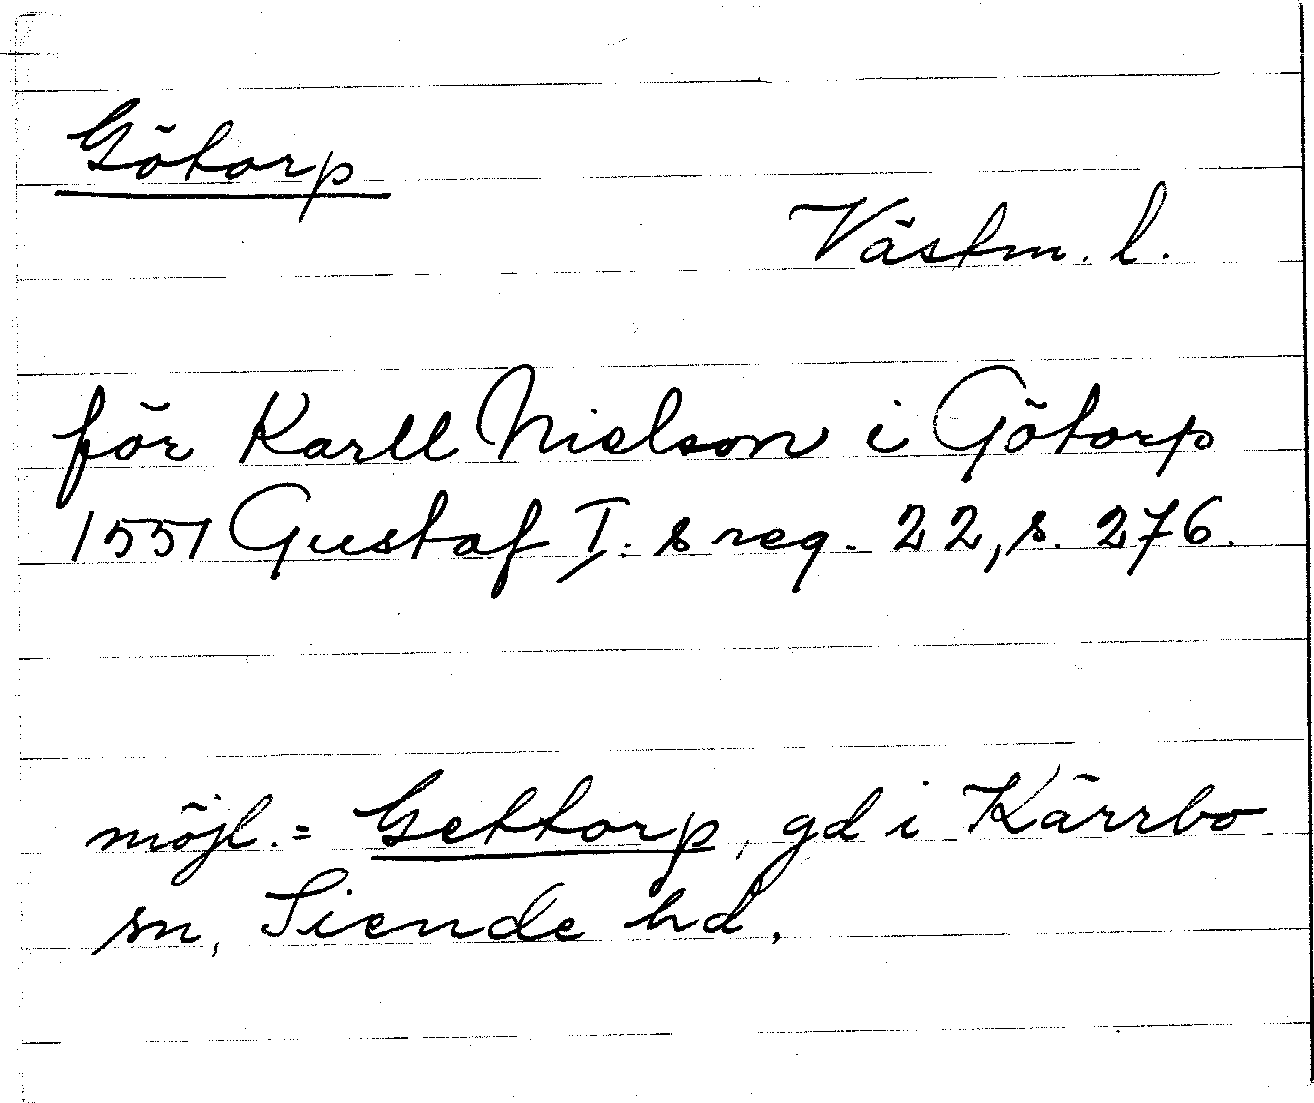 Götorp
Västm. l.
för Karll Nielson i Götorp
1551 Gustaf I:s reg. 22, s. 276.
möjl. = Gettorp, gd i Kärrbo
sn, Siende hd.